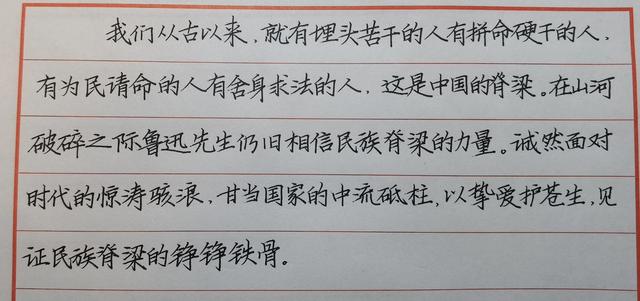 我们从古以来,就有埋头苦干的人有拼命硬干的人,
有为民请命的人有舍身求法的人,这是中国的脊梁。在山河
破碎之际鲁迅先生仍旧相信民族脊梁的力量。诚然面对
时代的惊涛骇浪,甘当国家的中流砥柱,以挚爱护苍生,见
证民族脊梁的铮铮铁骨。